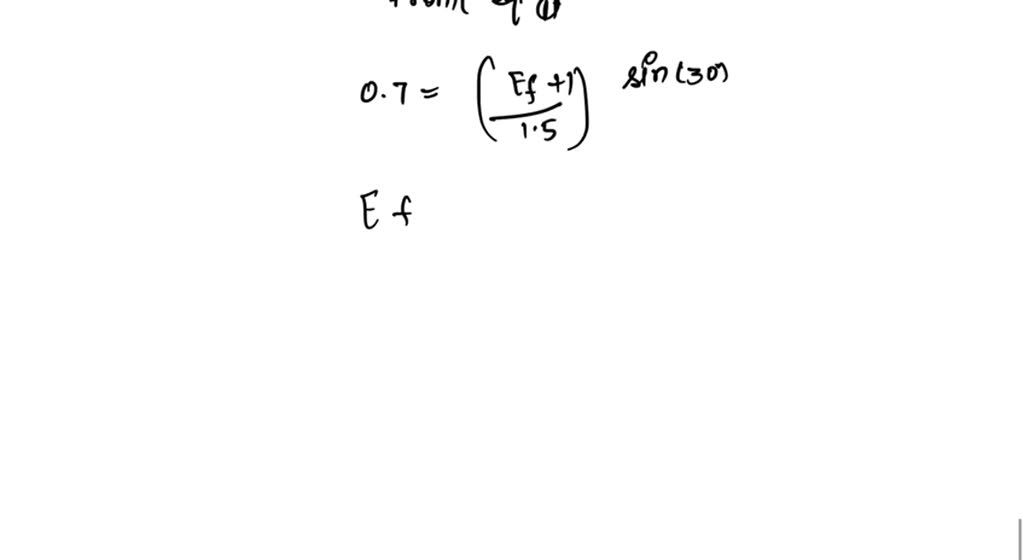 0.7 = (Ef +1 / 1.5) sin(30)
Ef